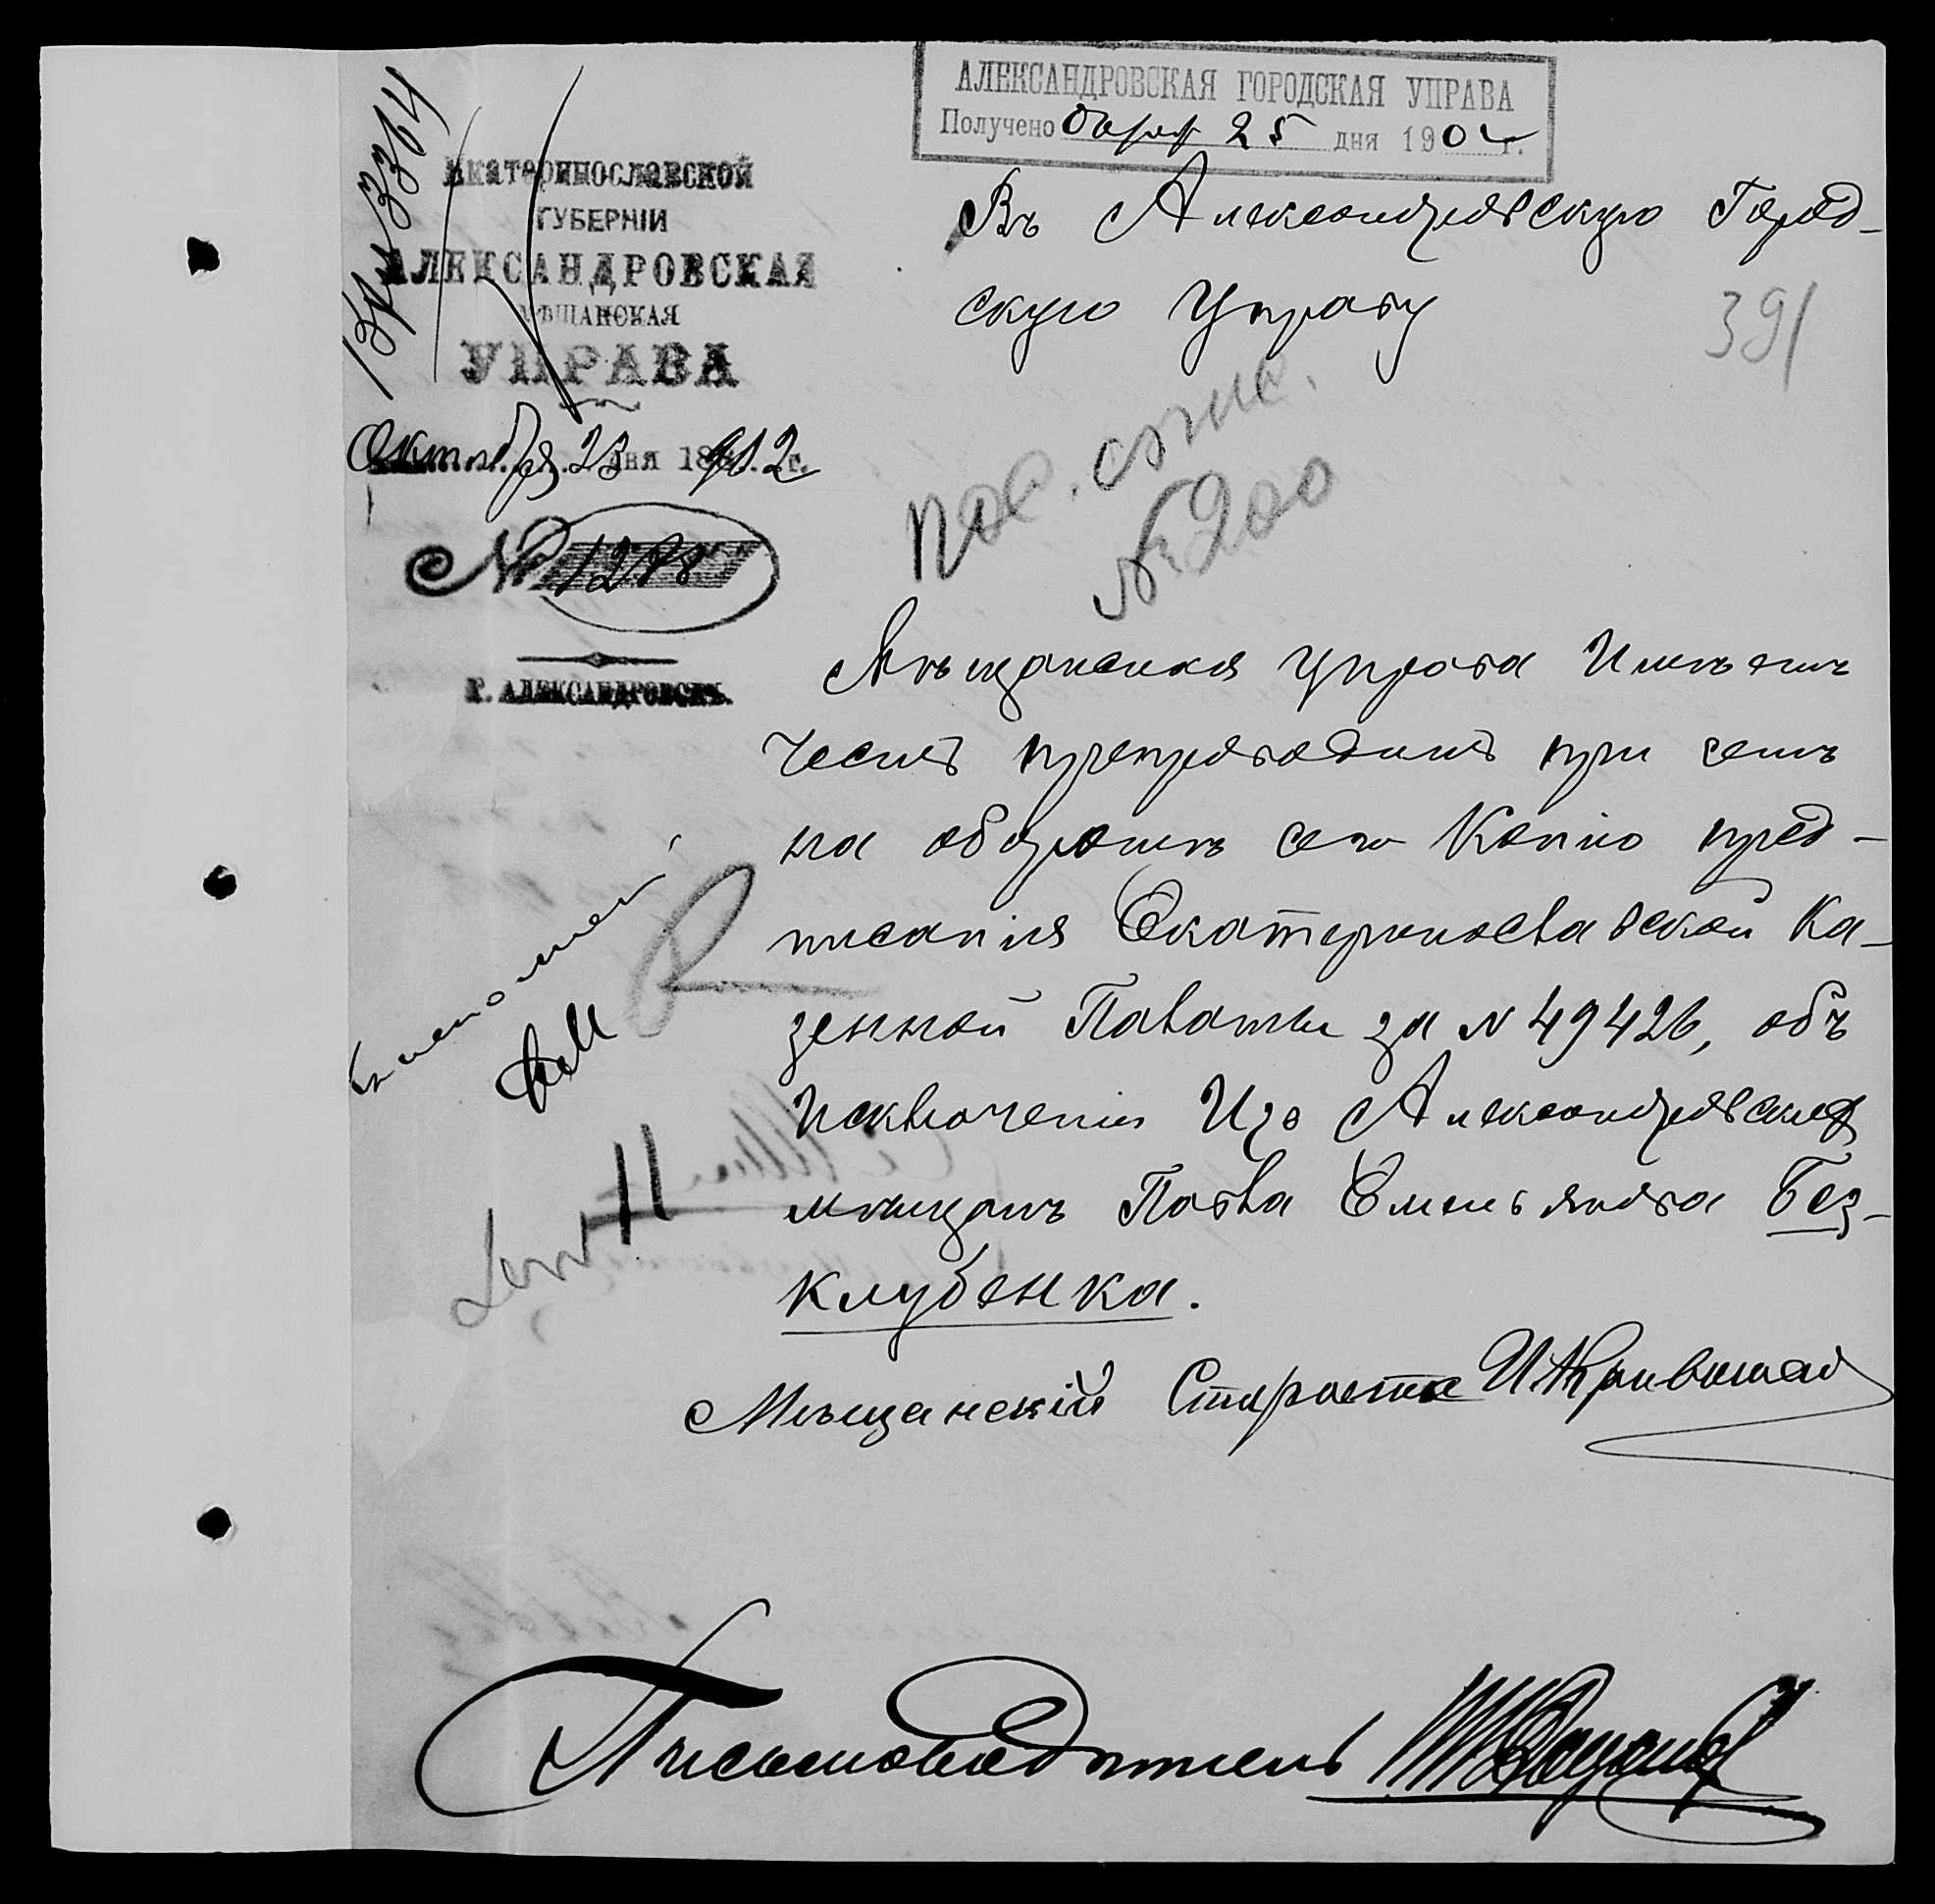 АЛЕКСАНДРОВСКАЯ ГОРОДСКАЯ УПРАВА
Получено Октяб 25 дня 1902 г.
Вх 3364
Екатеринославской
ГУБЕРНІИ
АЛЕКСАНДРОВСКАЯ
МѢЩАНСКАЯ
УПРАВА
Октября 23 дня 1902 г.
№ 1288
Г. АЛЕКСАНДРОВСКЪ.
Въ Александровскую Город-
скую Управу
391
пос. спис.
№ 200
Мѣщанская управа Имѣетъ
честь препроводить при семъ
на оборотѣ сего Копію пред-
писанія Екатеринославской Ка-
зенной Палаты за N 49426, объ
Исключеніи Изъ Александровскихъ
мѣщанъ Павла Емельянова Без-
клубенка.
Мѣщанскій Староста
Письмоводитель